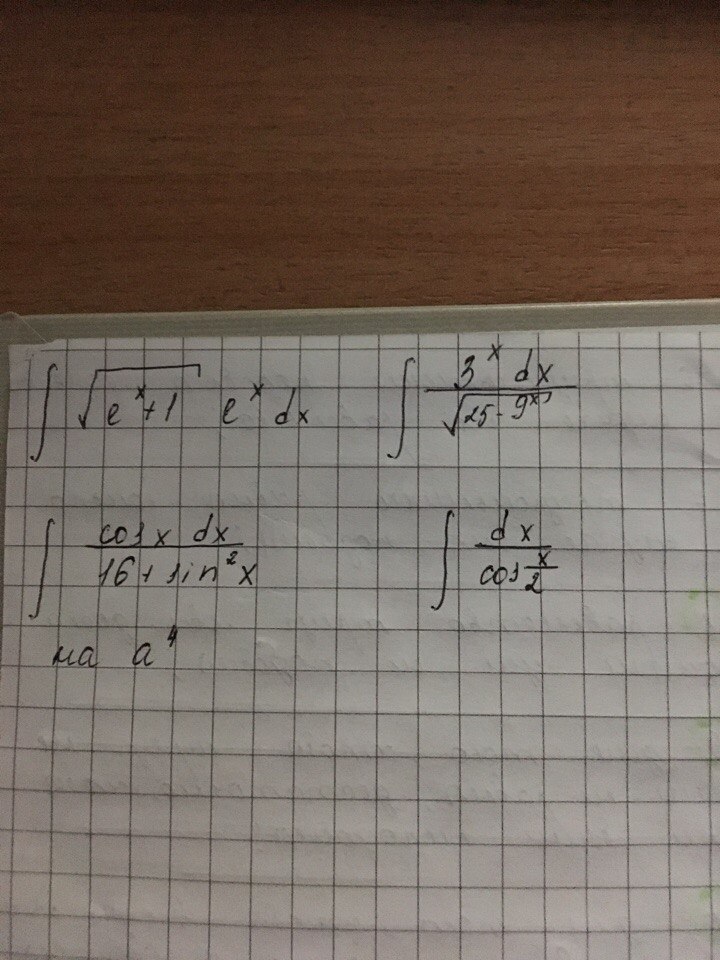 ∫ √(eˣ+1) eˣ dx ∫ 3ˣ dx / √(25 - 9ˣ)
∫ cos x dx / 16 + sin² x ∫ dx / cos x/2
на a⁴